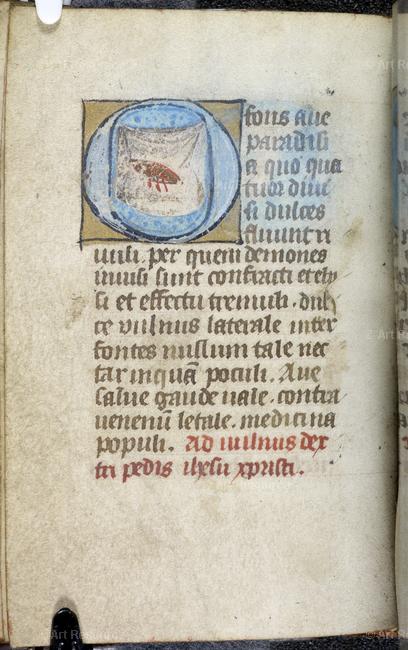 O fons aue
paradisi
a quo qua
tuor diui
si dulces
fluunt ri
uuli. per quem demones
inuisi sunt confracti et ely
si et effectu tremuli. dul
ce vulnus laterale inter
fontes nullum tale nec
tar inquā poculi. Aue
salue gaude uale. contra
uenenū letale. medicina
populi. Ad uulnus dex
tri pedis ihesu xpristi.